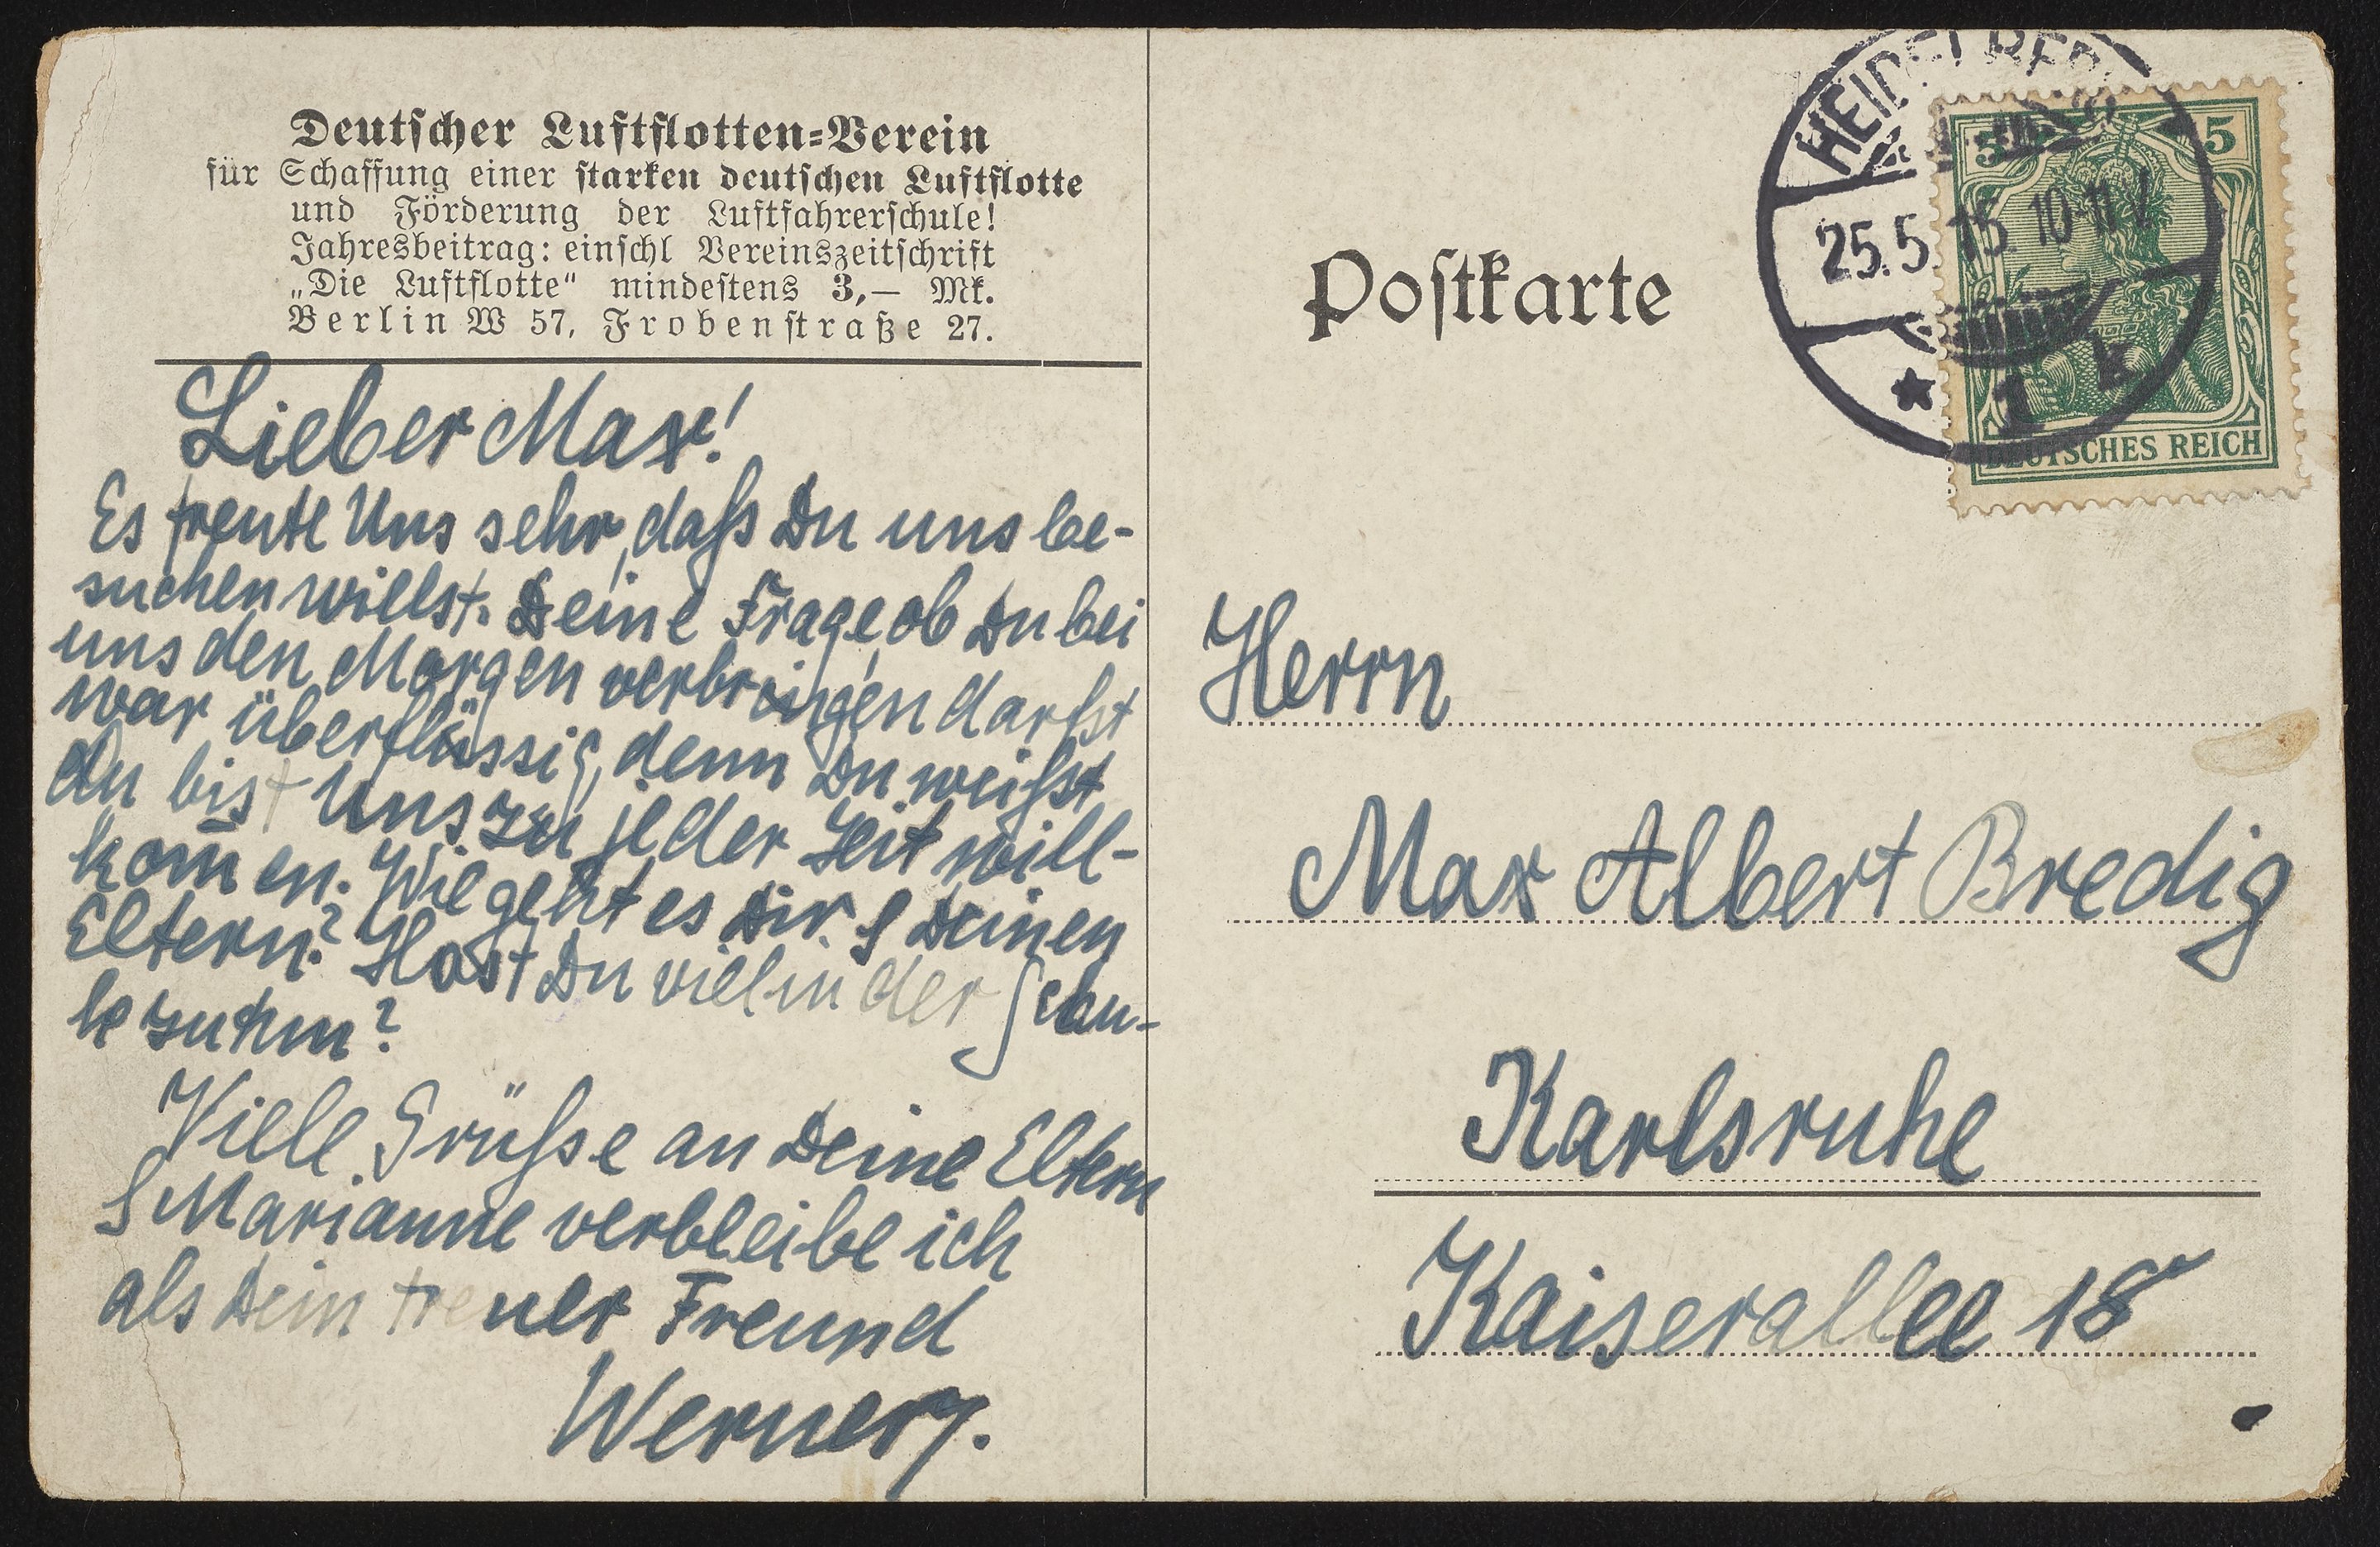 Deutscher Luftflotten=Verein
für Schaffung einer starken deutschen Luftflotte
und Förderung der Luftfahrerschule!
Jahresbeitrag: einschl Vereinszeitschrift
„Die Luftflotte“ mindestens 3,— Mk.
Berlin W 57, Frobenstraße 27.
Lieber Max!
Es freute Uns sehr, daß Du uns be-
suchen willst. Deine Frage, ob Du bei
uns den Morgen verbringen darfst
war überflüssig, denn Du weißt
du bist Uns zu jeder Zeit will-
kom̄en. Wie geht es Dir & Deinen
Eltern? Hast Du viel in der Schu-
le zu thun?
Viele Grüße an Deine Eltern
& Marianne verbleibe ich
als Dein treuer Freund
Werner
Postkarte
HEIDELBERG
25.5.15 10-11 V
* 1 k
5 5
DEUTSCHES REICH
Herrn
Max Albert Bredig
Karlsruhe
Kaiserallee 18